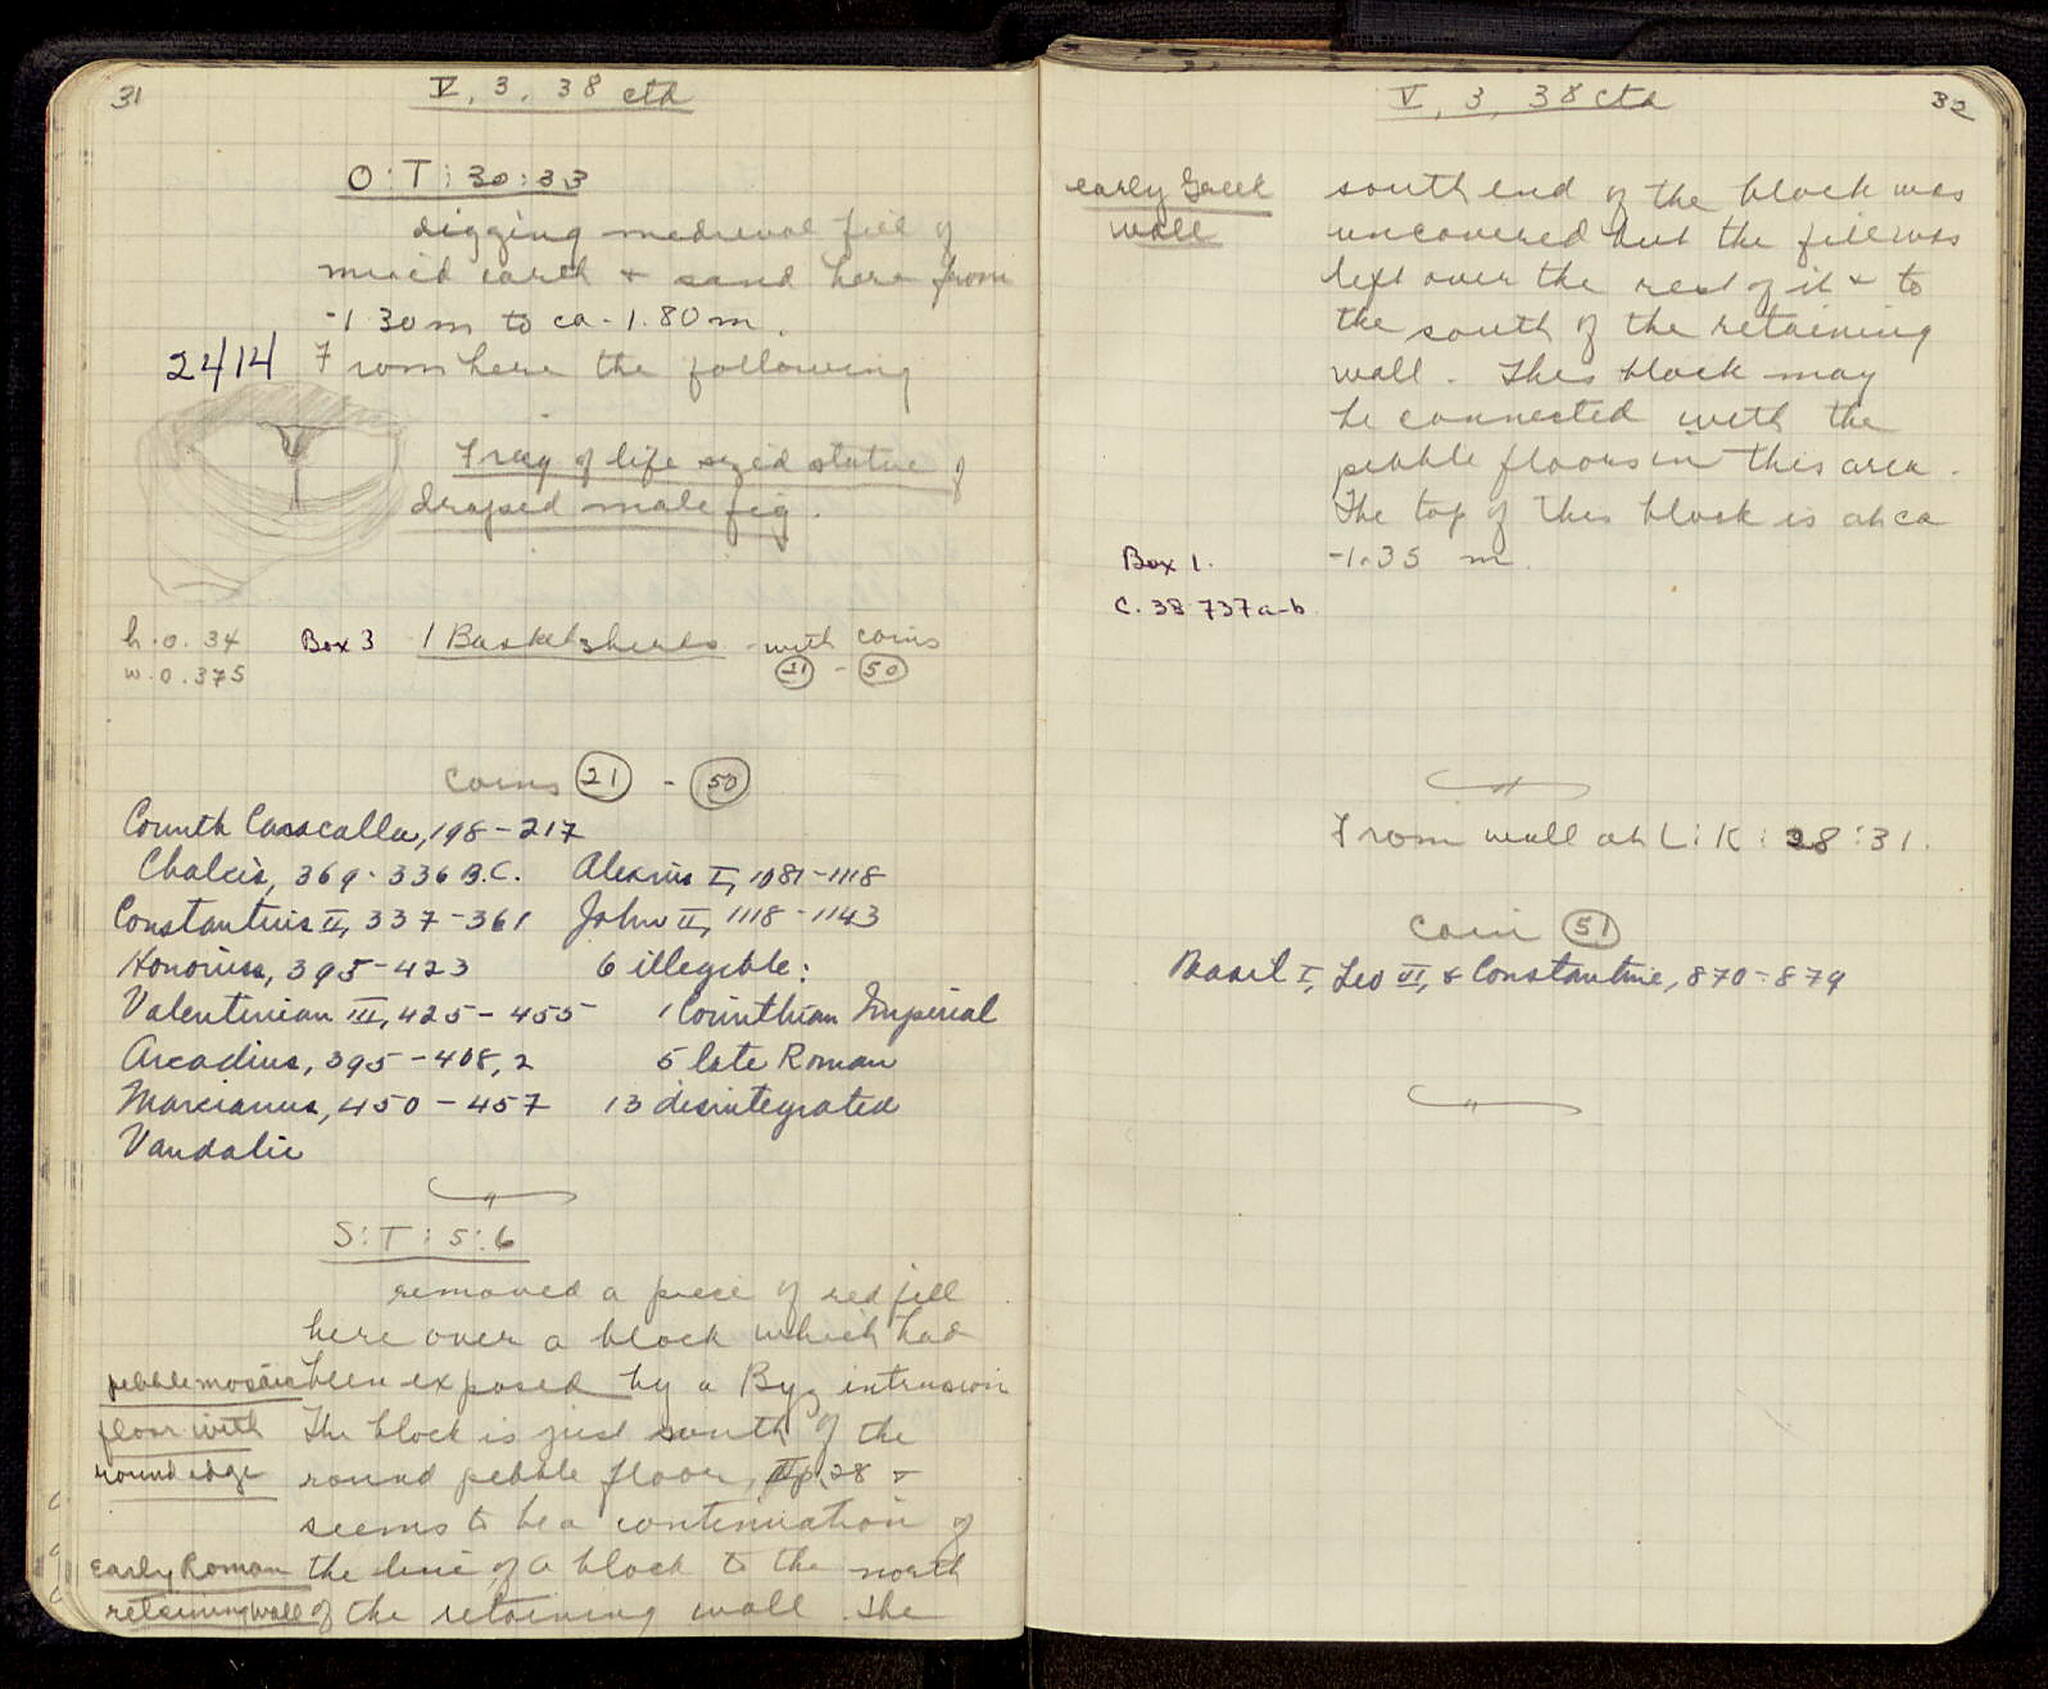 31
V, 3, 38 ctd
O:T:30:33
digging medieval fill of
mixed earth + sand here from
-1.30m to ca -1.80m.
2414
From here the following
Frag of life sized statue of
draped male fig.
h. 0.34
w. 0.375
Box 3 1 Basket sherds - with coins
21 - 50
Coins 21 - 50
Corinth Caracalla, 198-217
Chalcis, 369-336 B.C.
Constantius II, 337-361
Honorius, 395-423
Valentinian III, 425-455
Arcadius, 395-408, 2
Marcianus, 450-457
Vandalic
Alexius I, 1081-1118
John II, 1118-1143
6 illegible:
1 Corinthian Imperial
5 late Roman
13 disintegrated
S:T:5:6
removed a piece of red fill
here over a block which had
been exposed by a Byz intrusion
The block is just south of the
round pebble floor, p. 28 +
seems to be a continuation of
the line of a block to the north
of the retaining wall. The
pebble mosaic
floor with
round edge
Early Roman
retaining wall
V, 3, 38 ctd
32
early Greek
wall
south end of the block was
uncovered but the fill was
left over the rest of it + to
the south of the retaining
wall. This block may
be connected with the
pebble floors in this area.
The top of this block is at ca
-1.35 m.
Box 1.
C. 38 737a-b
From wall at L:K:28:31.
Coin 51
Basil I, Leo VI, & Constantine, 870-879